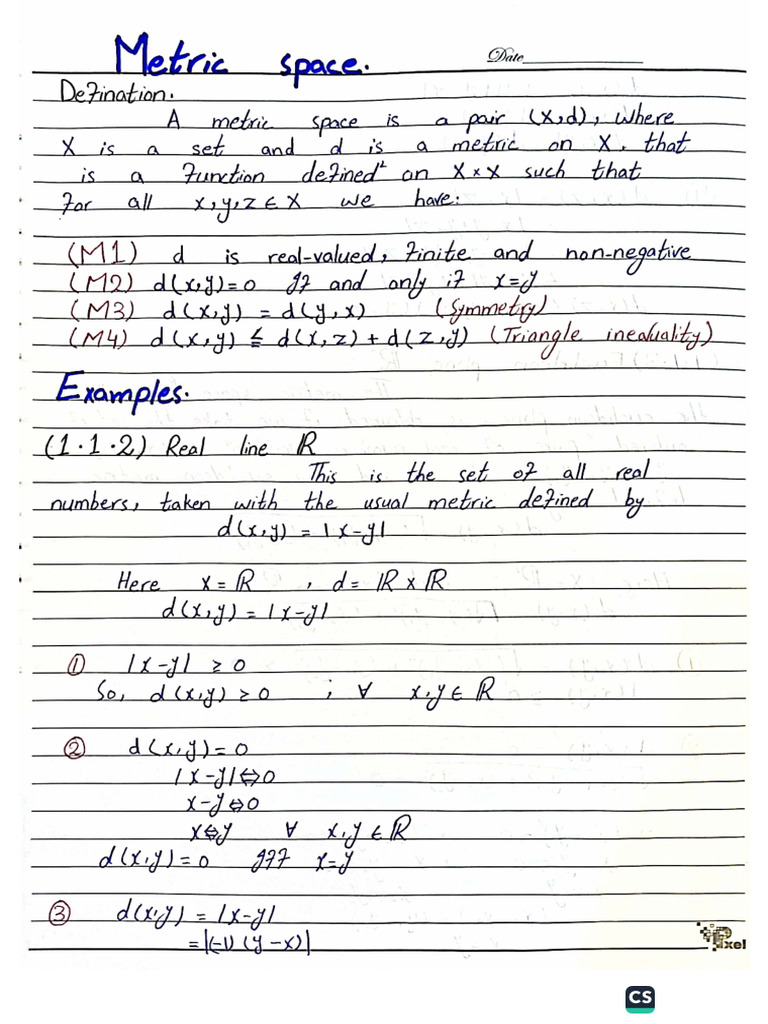 Metric space.
Date
Defination.
A metric space is a pair (X,d), where
X is a set and d is a metric on X, that
is a function defined² on X×X such that
for all x,y,z ∈ X we have:
(M1) d is real-valued, finite and non-negative
(M2) d(x,y)=0 If and only if x=y
(M3) d(x,y) = d(y,x) (Symmetry)
(M4) d(x,y) ≤ d(x,z) + d(z,y) (Triangle inequality)
Examples.
(1.1.2) Real line ℝ
This is the set of all real
numbers, taken with the usual metric defined by
d(x,y) = |x-y|
Here X = ℝ , d = ℝ × ℝ
d(x,y) = |x-y|
① |x-y| ≥ 0
So, d(x,y) ≥ 0 ; ∀ x,y ∈ ℝ
② d(x,y)=0
|x-y|⇔0
x-y⇔0
x⇔y ∀ x,y ∈ ℝ
d(x,y)=0 Iff x=y
③ d(x,y) = |x-y|
= |(-1)(y-x)|
Pixel
CS